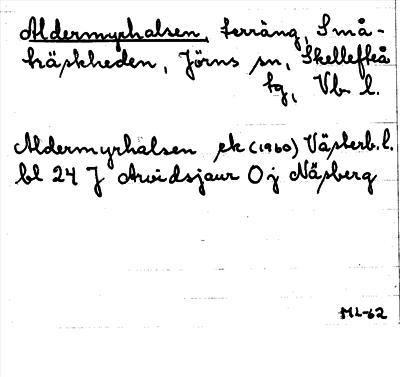 Aldermyrhalsen, terräng, Små-
träskheden, Jörns sn, Skellefteå
tg, Vb l.
Aldermyrhalsen ek (1960) Västerb. l.
bl 24 J Arvidsjaur Oj Näsberg
ML-62